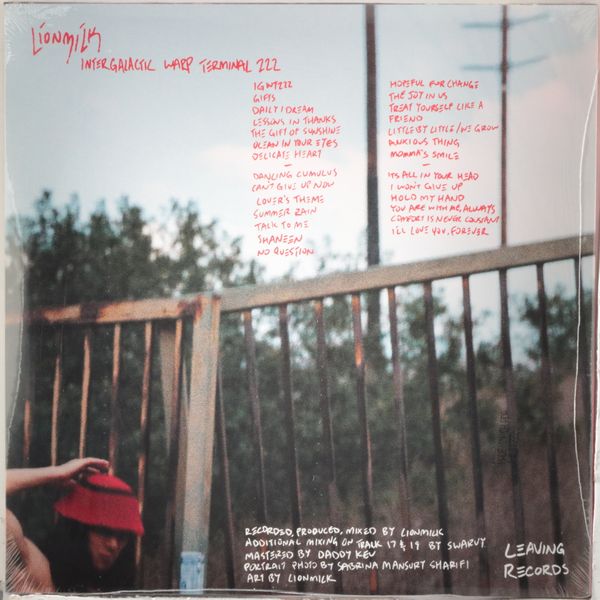 LIONMILK
INTERGALACTIC WARP TERMINAL 222
IGWT222
GIFTS
DAILY I DREAM
LESSONS IN THANKS
THE GIFT OF SUNSHINE
OCEAN IN YOUR EYES
DELICATE HEART
—
DANCING CUMULUS
CAN'T GIVE UP NOW
LOVER'S THEME
SUMMER RAIN
TALK TO ME
SHANEEN
NO QUESTION
HOPEFUL FOR CHANGE
THE JOY IN US
TREAT YOURSELF LIKE A
FRIEND
LITTLE BY LITTLE/WE GROW
ANXIOUS THING
MOMMA'S SMILE
—
ITS ALL IN YOUR HEAD
I WON'T GIVE UP
HOLD MY HAND
YOU ARE WITH ME, ALWAYS
COMFORT IS NEVER CONSTANT
I'LL LOVE YOU, FOREVER
RECORDED, PRODUCED, MIXED BY LIONMILK
ADDITIONAL MIXING ON TRACK 17 & 19 BY SWARVY
MASTERED BY DADDY KEV
PORTRAIT PHOTO BY SABRINA MANSURY SHARIFI
ART BY LIONMILK
LEAVING
RECORDS